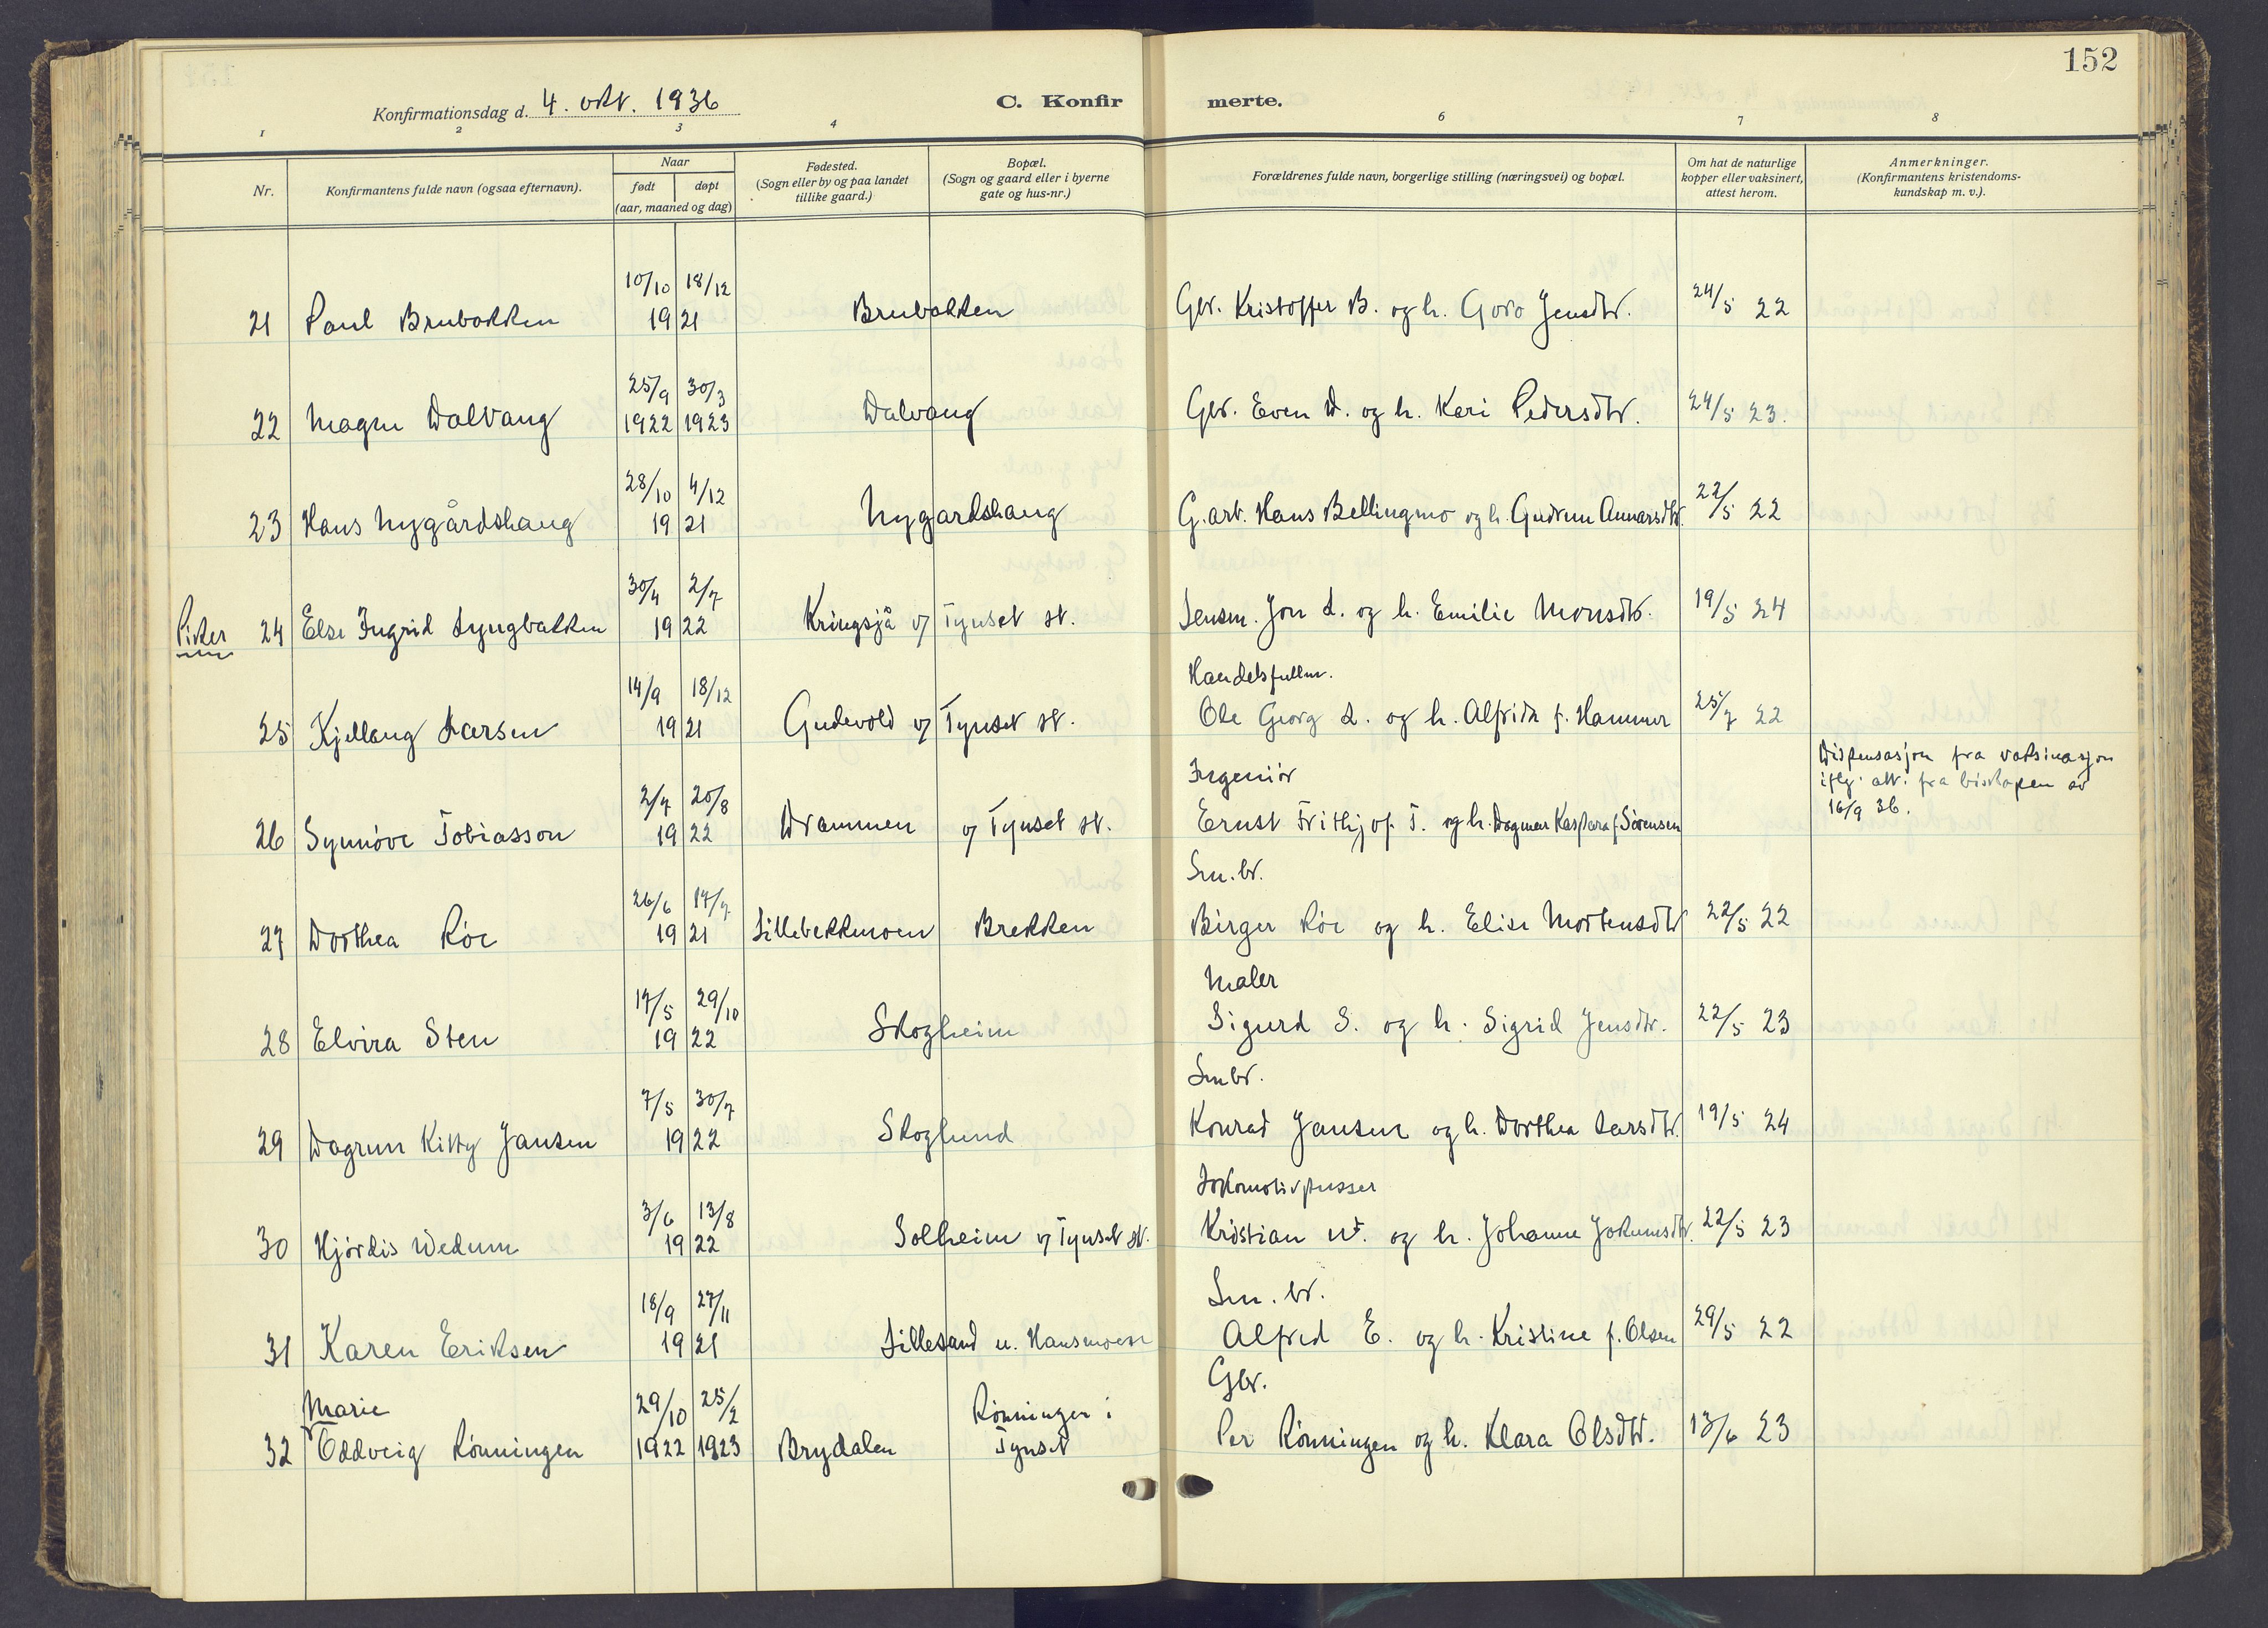 152
Konfirmationsdag d. 4. okt. 1936
C. Konfirmerte.
1 2 3 4 6 7 8
Nr.
Konfirmantens fulde navn (ogsaa efternavn).
Naar
født døpt
(aar, maaned og dag)
Fødested.
(Sogn eller by og paa landet
tillike gaard.)
Bopæl.
(Sogn og gaard eller i byerne
gate og hus-nr.)
Forældrenes fulde navn, borgerlige stilling (næringsvei) og bopæl.
Om hat de naturlige
kopper eller vaksinert,
attest herom.
Anmerkninger.
(Konfirmantens kristendoms-
kundskap m. v.).
10/10 18/12
21 Paul Brubakken 19 21 Brubakken Gbr. Kristoffer B. og h. Goro Jensdtr. 24/5 22
25/9 30/3
22 Magne Dalvang 1922 1923 Dalvang Gbr. Even D. og h. Kari Pedersdtr. 24/5 23.
28/10 4/12
23 Hans Nygårdshaug 19 21 Nygardshaug G.arb. Hans Bellingmo og h. Gudrun Annarsdtr. 22/5 22
30/4 2/7
Piker 24 Else Ingrid Lyngbakken 19 22 Kringsjå v/ Tynset st. Lensm. Jon L. og h. Emilie Monsdtr. 19/5 24
14/9 18/12 Handelsfullm.
25 Kjellaug Larsen 19 21 Gudevold v/ Tynset st. Ole Georg L. og h. Alfrida f. Hammer 25/7 22
2/7 20/8 Ingeniör Dispensasjon fra vaksinasjon
iflg. att. fra biskopen av
16/9 36.
26 Synnöve Tobiasson 19 22 Drammen v/ Tynset st. Ernst Frithjof T. og h. Dagmar Kaspara f. Sörensen
26/6 17/7 Sm.br.
27 Dorthea Röe 19 21 Lillebekkmoen Brekken Birger Röe og h. Elise Mortensdtr 22/5 22
17/5 29/10 Maler
28 Elvira Sten 19 22 Skogheim Sigurd S. og h. Sigrid Jensdtr. 22/5 23
7/5 30/7 Smbr.
29 Dagrun Kitty Jansen 19 22 Skoglund Konrad Jansen og h. Dorthea Larsdtr. 19/5 24
3/6 13/8 Lokomotivpusser
30 Hjördis Wedum 19 22 Solheim v/ Tynset st. Kristian W. og h. Johanne Jokumsdtr. 22/5 23
18/9 27/11 Sm. br.
31 Karen Eriksen 19 21 Lillesand u. Hansmoen Alfred E. og h. Kristine f. Olsen 29/5 22
Marie 29/10 25/2 Rönningen i Gbr.
32 Oddveig Rönningen 1922 1923 Brydalen Tynset Per Rönningen og h. Klara Olsdtr. 13/6 23